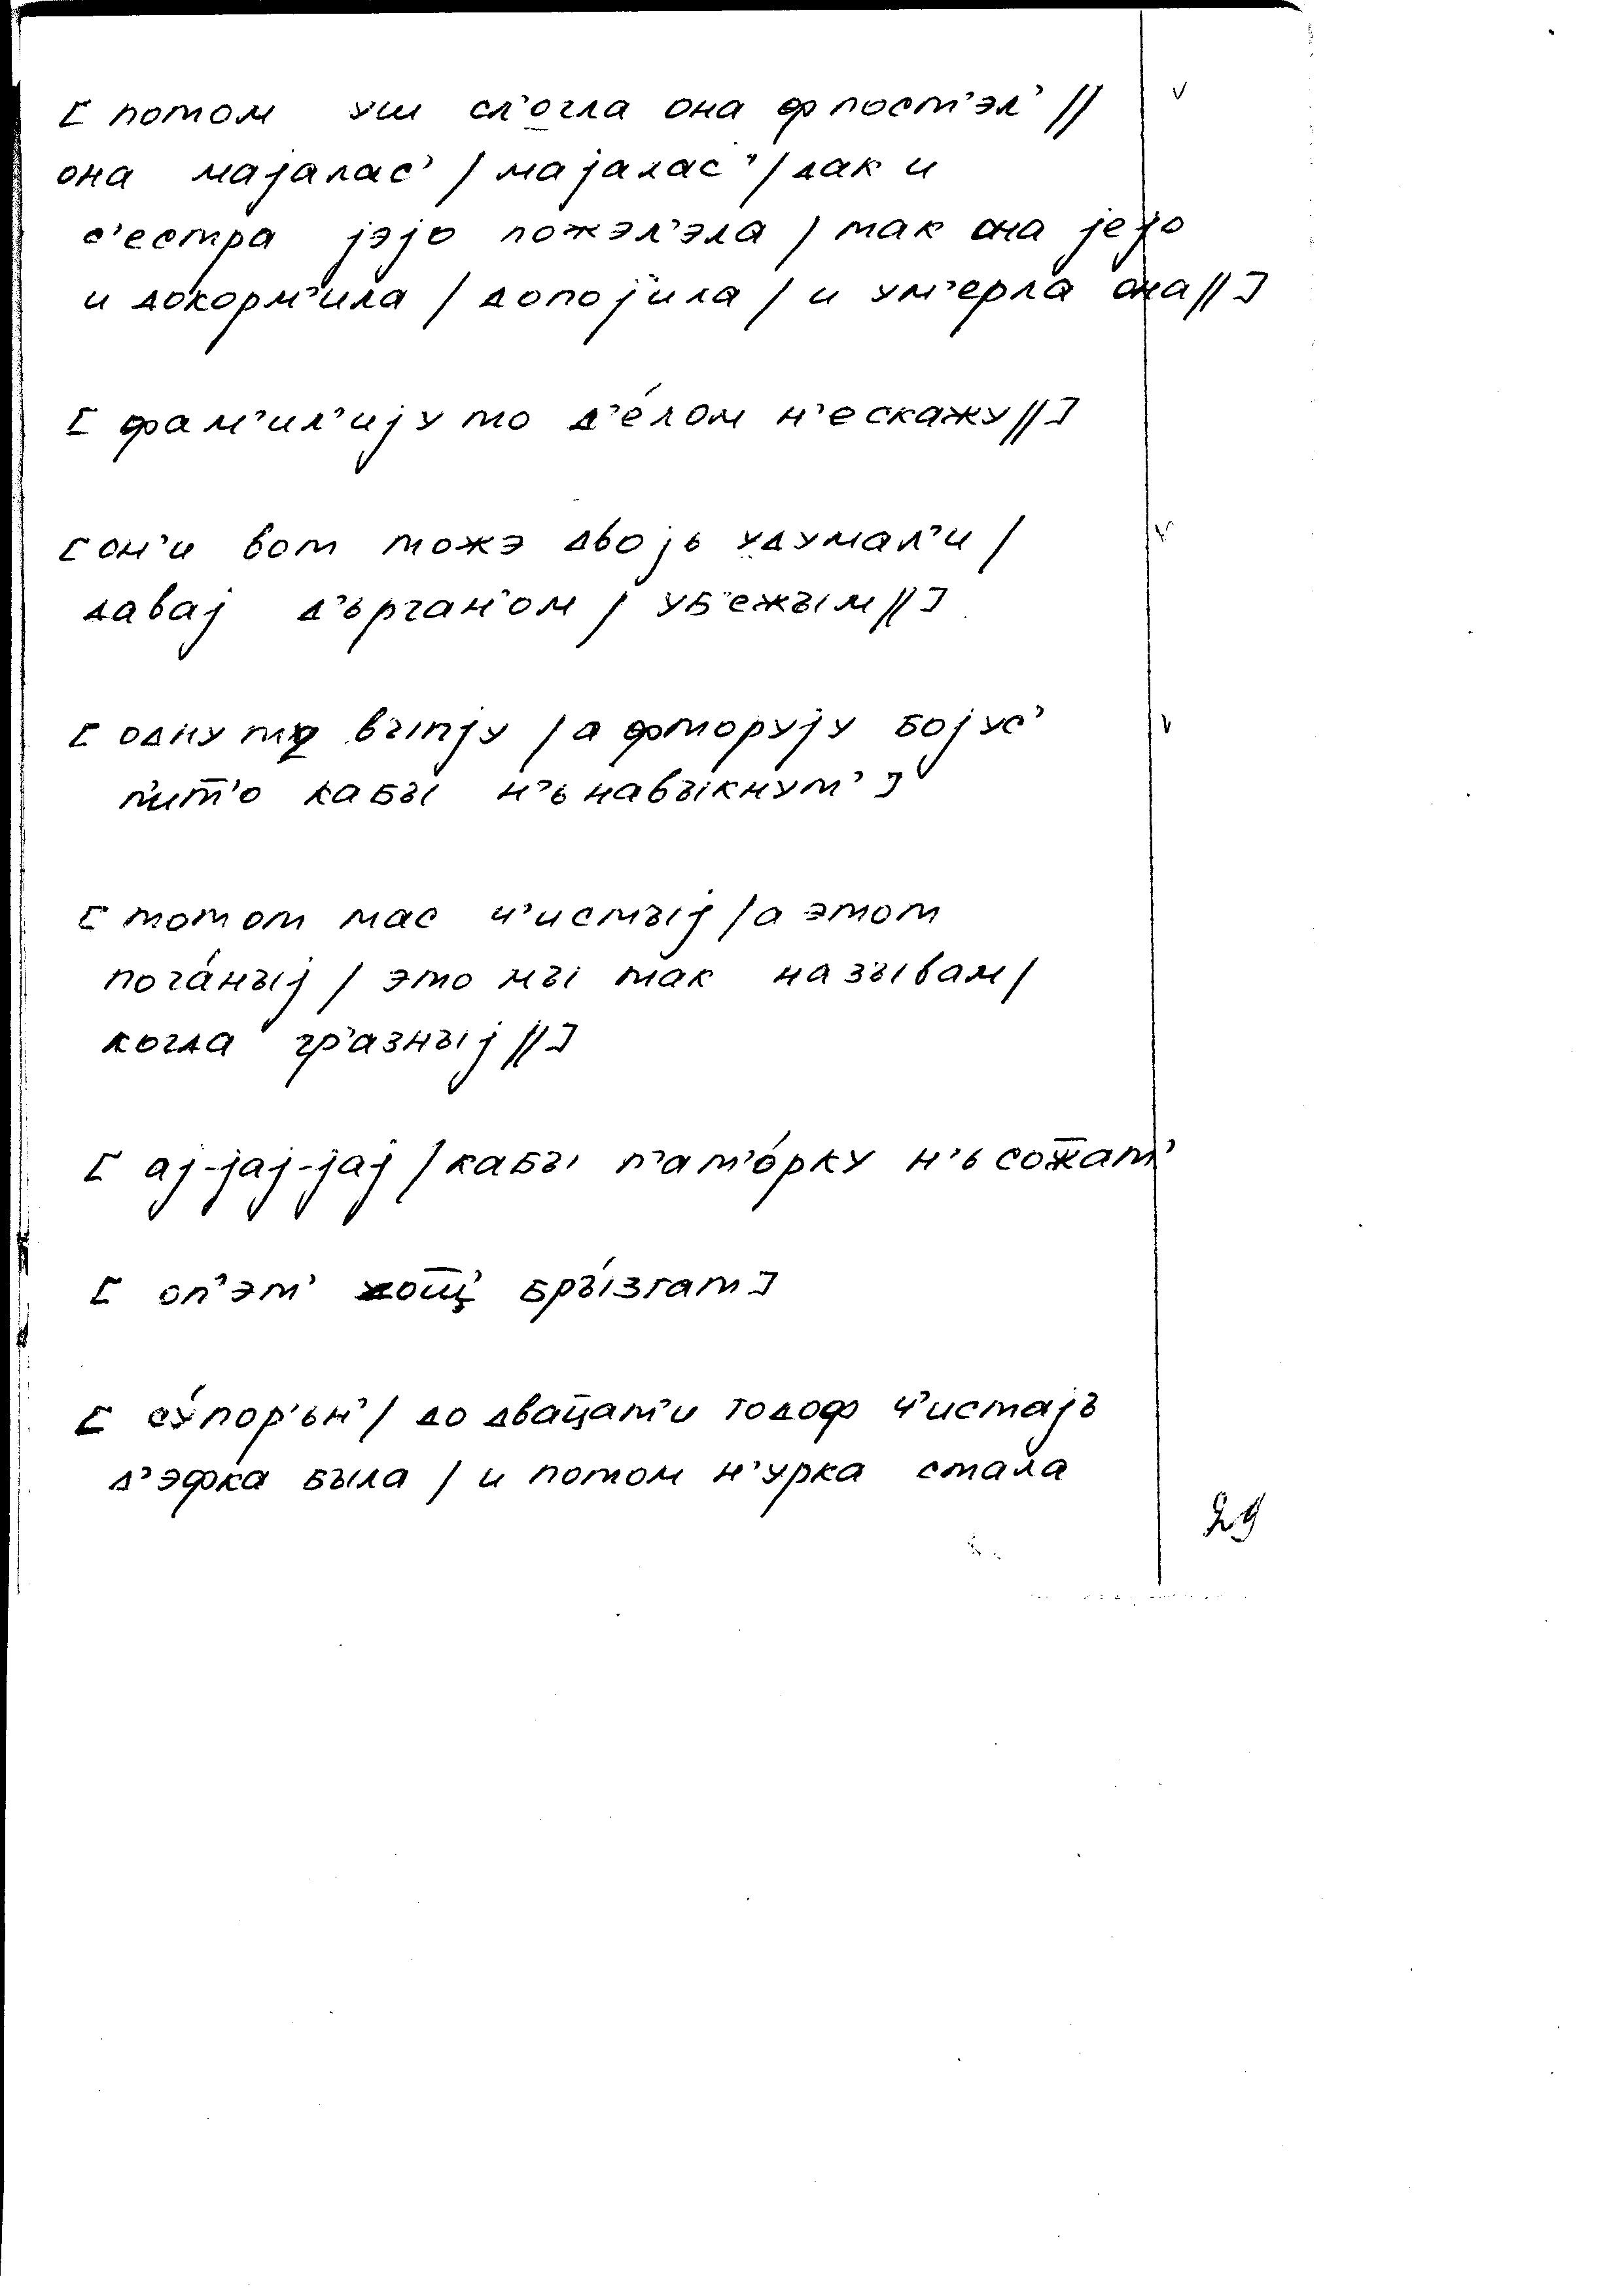 [ потом уш сл'огла она ф пост'эл' //
она мајалас' / мајалас' / дак и
с'естра јэјо пожэл'эла / так она јејо
и докорм'ила / допој'ила / и ум'ерла она // ]
[ фам'ил'ију то д'е́лом н'ескажу // ]
[ он'и вот тожэ двојь удумал'и /
давај д'ърган'ом / уб'ежъім // ]
[ одну то въıпју / а фторују бојус'
п'ит̅'о кабъı н'ь навъıкнут' ]
[ тотот тас ч'истъıј / а этот
пога́нъıј / это мъı так назъıвам /
когда гр'азнъıј // ]
[ ај-јај-јај / кабъı п'ат'о́рку н'ь сож̅ат'
[ оп'эт' хош̅' бръ́ızгат ]
[ су́пор'ьн' / до двац̅ат'и годоф ч'истајъ
д'эфка была / и потом н'урка стала
29